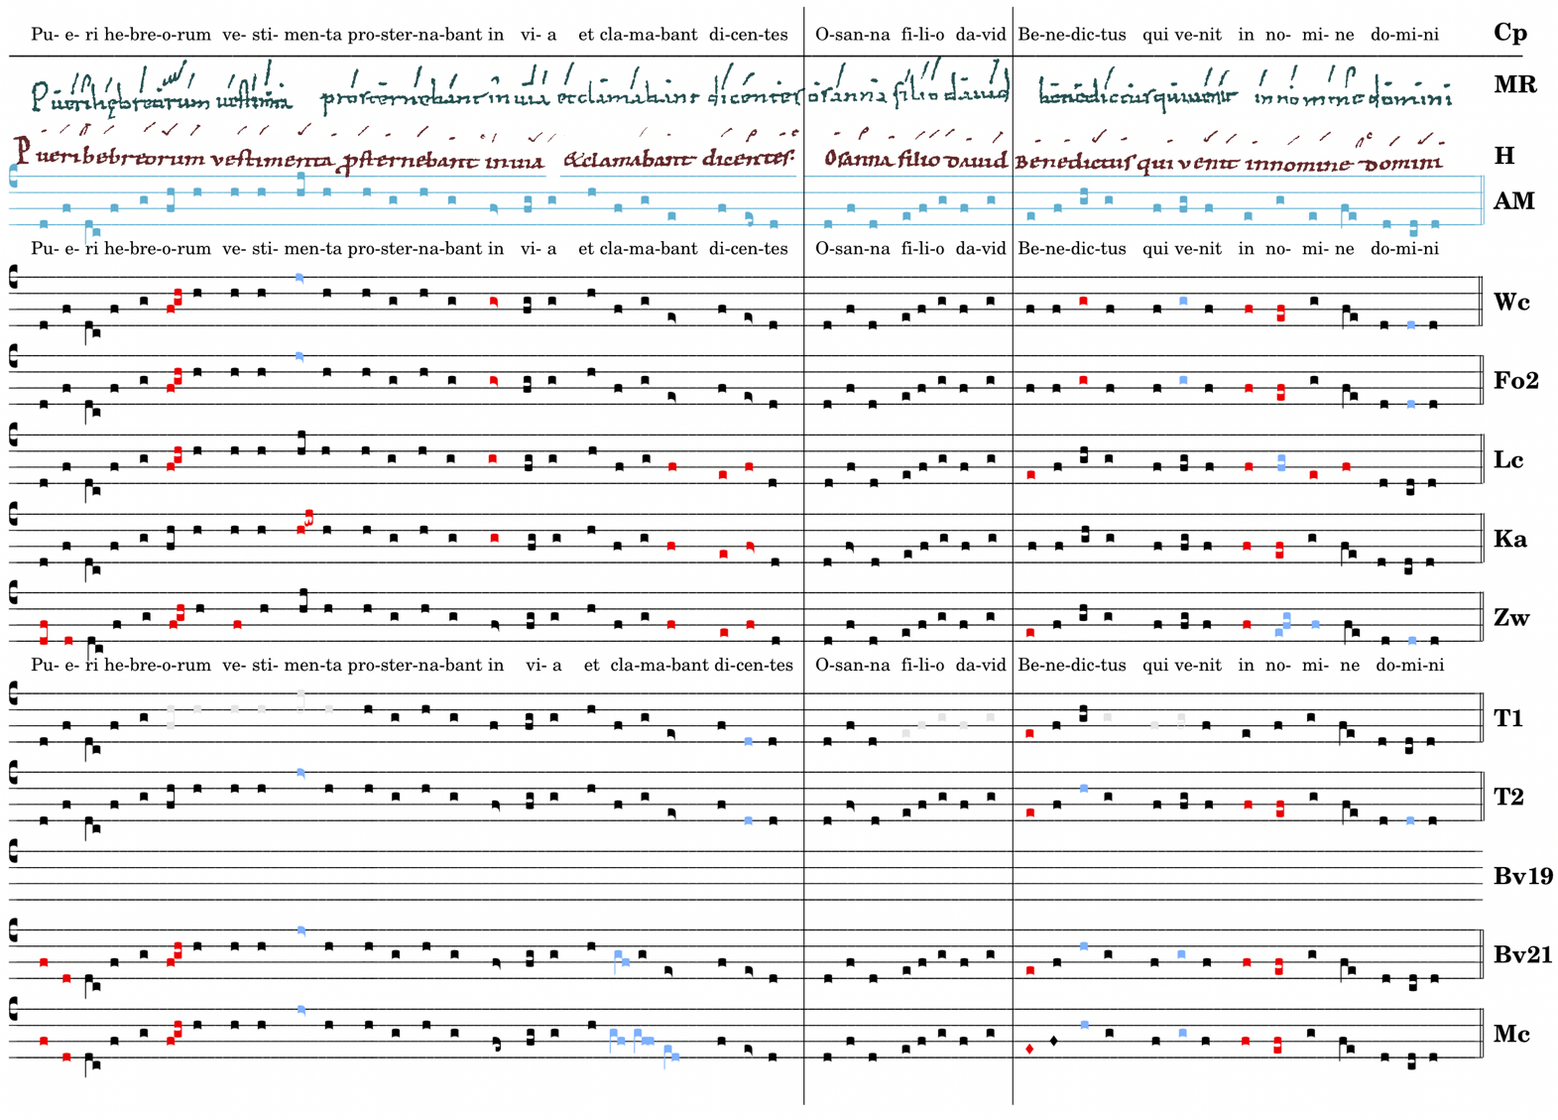 Pu- e- ri he-bre-o-rum ve- sti- men-ta pro-ster-na-bant in vi- a et cla-ma-bant di-cen-tes O-san-na fi-li-o da-vid Be-ne-dic-tus qui ve-nit in no- mi- ne do-mi-ni Cp
Pueri hebreorum vestimenta prosternebant in uia et clamabant dicentes osanna filio dauid benedictus qui uenit in nomine domini MR
Pueri hebreorum vestimenta psternebant in uia & clamabant dicentes. Osanna filio dauid Benedictus qui venit in nomine domini H
AM
Pu- e- ri he-bre-o-rum ve- sti- men-ta pro-ster-na-bant in vi- a et cla-ma-bant di-cen-tes O-san-na fi-li-o da-vid Be-ne-dic-tus qui ve-nit in no- mi- ne do-mi-ni
Wc
Fo2
Lc
Ka
Zw
Pu- e- ri he-bre-o-rum ve- sti- men-ta pro-ster-na-bant in vi- a et cla-ma-bant di-cen-tes O-san-na fi-li-o da-vid Be-ne-dic-tus qui ve-nit in no- mi- ne do-mi-ni
T1
T2
Bv19
Bv21
Mc